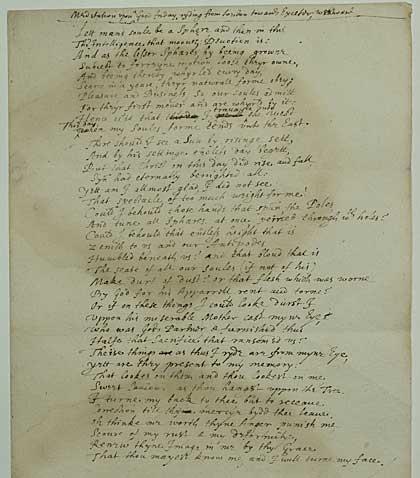 Meditation upon Good friday, ryding from London towards Exceter, westward
Lett mans soule be a Sphere and then in this
The Intelligence, that moves, Devotion is.
And as the other Spheares by beeing growne
Subiect to forreyne motion loose theyr owne,
And beeing thereby whyrled every day,
Scarce in a yeare, theyr naturall forme obey;
Pleasure and Business so our soules admitt
For theyr first mover and are whyrld by it.
Hence is't that I towards the West
This day when my Soules forme bends the East.
There should I see a Sun by rising sett,
And by his setting endles day begett.
But that Christ in this day did rise and fall
Syn had eternally benighted all.
Yett am I allmost glad I did not see
That spectacle of too much weight for me.
Could I behould those hands that span the Poles
And tune all Spheares at once, peirced through with holes?
Could I behould that endles height that is
Zenith to us and our Antipodes
Humbled beneath us? and that bloud that is
The seate of all our soules if not of his
Make durt of dust? or that flesh which was worne
By God for his Apparrell ragd and torne?
Or if on these things I could looke durst I
Uppon his miserable Mother cast myne Ey,
Who was Gods Partner & furnished thus
Halfe that Sacrifice that ransomd us?
These things as I ryde are from myne Eye,
Yett are they present to my memory;
That lookes on them and thou lookest on me
Sweet Saviour, as thou hangst uppon the Tree.
I turne my back to thee but to receave
Correction till thy mercyes bydd thee leave.
Oh thinke me worth thyne Anger punish me
Scoure of my rust & my deformitie,
Renew thyne Image in me by thy Grace
That thou mayest know me, and I will turne my face.